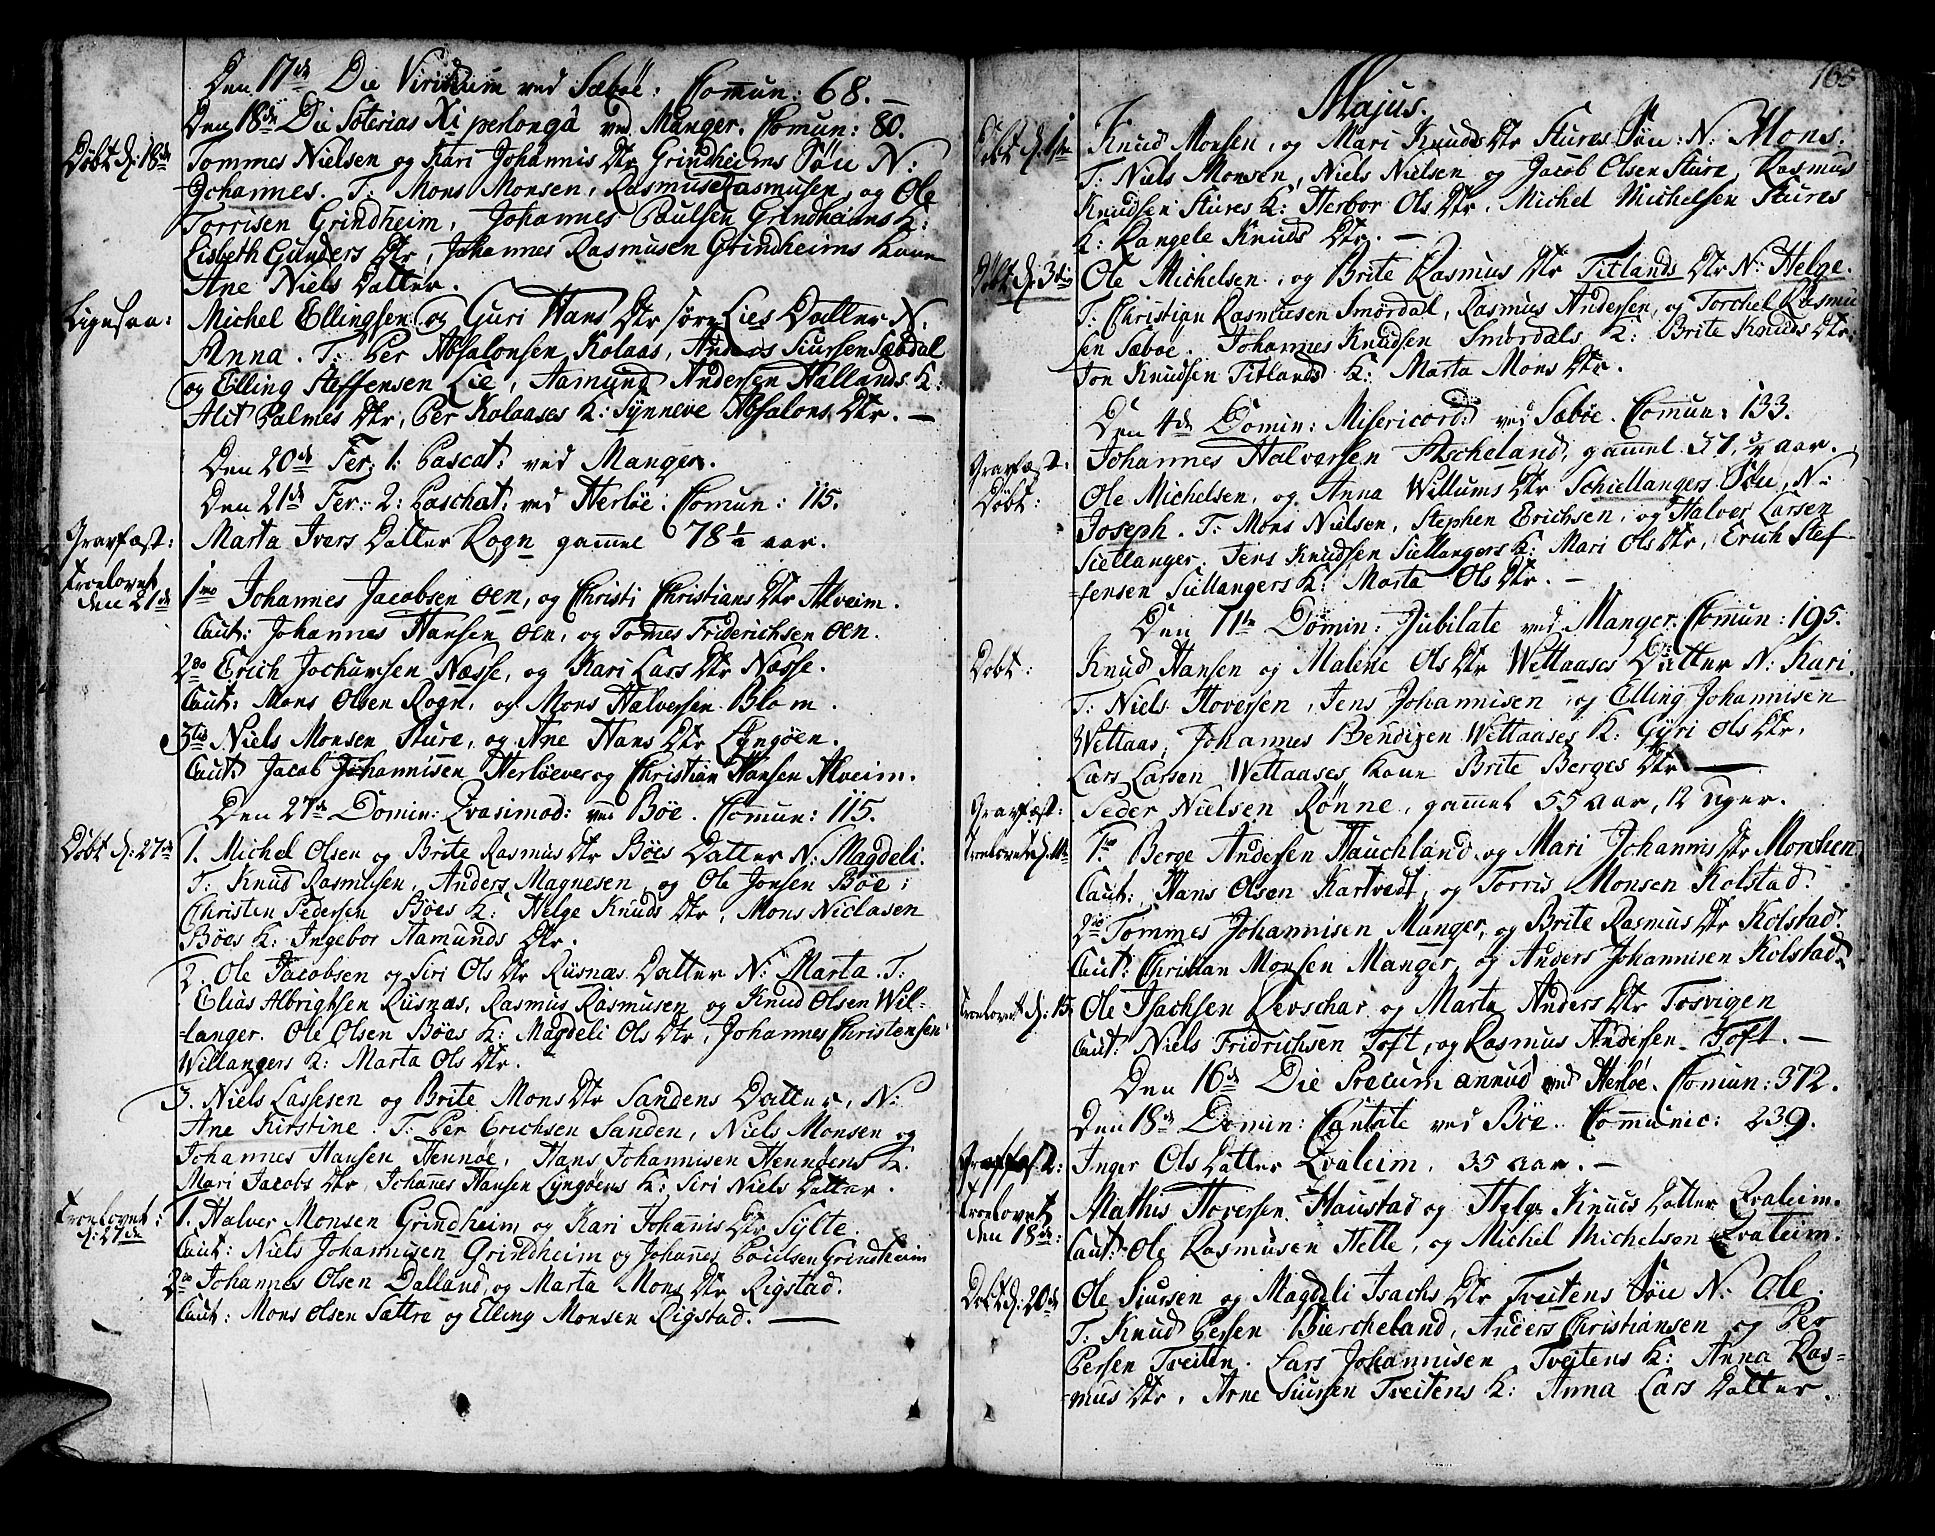 Den 17de Die Viridium ved Sæbøe: Comun: 68. —
Den 18de Die Soterias Xi perlongâ ved Manger. Comun: 80.
Döbt d: 18de Tommes Nielsen og Kari Johannis Dtr Grindheims Søn N:
Johannes. T: Mons Monsen, Rasmus Rasmusen, og Ole
Torrisen Grindheim, Johannes Poulsen Grindheims K:
Lisbeth Gunders Dtr, Johannes Rasmusen Grindheims Kone
Ane Niels Datter.
Ligesaa: Michel Ellingsen og Guri Hans Dtr søre Lies Datter N.
Anna. T: Per Absalonsen Kolaas, Anders Siursen Sæbdal
og Elling Steffensen Lie, Aamund Andersen Hallands K:
Alit Palmes Dtr, Per Kolaases K: Synneve Absalons Dtr. —
Den 20de Fer: 1. Pascat: ved Manger.
Den 21de Fer: 2: Paschat: ved Herløe: Comun: 115.
Gravfæst: Marta Ivers Datter Rogn gammel 78 1/2 aar.
Troelovet
den 21de 1mo Johannes Jacobsen Oen, og Christi Christians Dtr Alveim.
Caut: Johannes Hansen Oen, og Tomes Friderichsen Oen.
2do Erich Jochumsen Næsse, og Kari Lars Dtr Næsse.
Caut: Mons Olsen Rogn, og Mons Halversen Blom.
3tio Niels Monsen Sture, og Ane Hans Dtr Lyngøen.
Caut: Jacob Johannisen Herløevær og Christian Hansen Alveim.
Den 27de Domin: Qvasimod: ved Bøe. Comun: 115.
Döbt d: 27de 1. Michel Olsen og Brite Rasmus Dtr Bøes Datter N: Magdeli
T: Knud Rasmusen, Anders Magnesen og Ole Jonsen Bøe:
Christen Pedersen Bøes K: Helge Knuds Dtr, Mons Niclasen
Bøes K: Ingebor Aamunds Dtr.
2. Ole Jacobsen og Siri Ols Dtr Riisnæs Datter N: Marta. T:
Elias Albrightsen Riisnæs, Rasmus Rasmusen og Knud Olsen Wil-
-langer. Ole Olsen Bøes K: Magdeli Ols Dtr, Johannes Christensen
Willangers K: Marta Ols Dtr.
3. Niels Lassesen og Brite Mons Dtr Sandens Datter, N:
Ane Kirstine. T: Per Erichsen Sanden, Niels Monsen og
Johannes Hansen Hennøe, Hans Johannisen Hennøens K.
Mari Jacobs Dtr, Johanes Hansen Lyngøens K: Siri Niels Datter.
Troelovet:
d: 27de 1. Halver Monsen Grindheim og Kari Johannis Dtr Sylte.
Caut: Niels Johannisen Grindheim og Johanes Poulsen Grindheim
2do Johannes Olsen Dalland, og Marta Mons Dtr Rigstad.
Caut: Mons Olsen Sættre og Elling Monsen Rigstad. —
165
Majus.
Döbt d: 1ste Knud Monsen, og Mari Knuds Dtr Stures Søn: N: Mons.
T: Niels Monsen, Niels Nielsen og Jacob Olsen Sture, Rasmus
Knudsen Stures K: Herbor Ols Dtr, Michel Michelsen Stures
K: Rangele Knuds Dtr. —
Döbt d: 3die Ole Michelsen, og Brite Rasmus Dtr Titlands Dtr N: Helge.
T: Christian Rasmusen Smørdal, Rasmus Andersen, og Torchel Rasmu
sen Sæbøe. Johannes Knudsen Smørdals K: Brite Knuds Dtr.
Jon Knudsen Titlands K: Marta Mons Dtr.
Den 4de Domin: Misericord: ved Sæbøe. Comun: 133.
Gravfæst: Johannes Halversen Ascheland, gammel 37 1/2 aar.
Döbt: Ole Michelsen, og Anna Willums Dtr Schiellangers Søn, N:
Joseph. T: Mons Nielsen, Stephen Erichsen, og Halver Larsen
Siellanger. Jens Knudsen Siellangers K: Mari Ols Dtr, Erich Stef
-fensen Siellangers K: Marta Ols Dtr. —
Den 11te Domin: Jubilate ved Manger. Comun: 195.
Döbt: Knud Hansen og Malene Ols Dtr Wetlaases Datter N: Kari.
T: Niels Hoversen, Jens Johannisen, og Elling Johannisen
Wetlaas, Johannes Bendixen Wetlaases K: Gyri Ols Dtr,
Lars Larsen Wetlaases Kone Brite Berges Dtr —
Gravfæst: Peder Nielsen Rønne, gammel 55 aar, 12 uger.
Troelovet d: 11te 1mo Berge Andersen Hauchland og Mari Johannis Dtr Monsten
Caut: Hans Olsen Kartvedt, og Torris Monsen Kolstad.
2do Tommes Johannisen Manger, og Brite Rasmus Dtr Kolstad.
Caut: Christian Monsen Manger og Anders Johannisen Kolstad.
Troelovet d: 15 Ole Isachsen Revschar og Marta Anders Dtr Tosvigen
Caut: Niels Fridrichsen Toft, og Rasmus Andersen Toft. —
Den 16de Die Precum annud ved Herløe. Comun: 372.
Den 18de Domin: Cantate ved Bøe. Communic: 239.
Gravfæst: Inger Ols Datter Qvaleim, 35 aar. —
Troelovet
den 18de: Mathis Hoversen Haustad og Helge Knuds Datter Qvaleim.
Caut: Ole Rasmusen Helle, og Michel Michelsen Qvaleim.
Döbt d: 20de Ole Siursen og Magdeli Isachs Dtr Tveitens Søn N: Ole.
T: Knud Persen Biercheland, Anders Christiansen og Per
Persen Tveiten. Lars Johannisen Tveitens K: Anna Ras=
-mus Dtr, Arne Siursen Tveitens K: Anna Lars Datter.